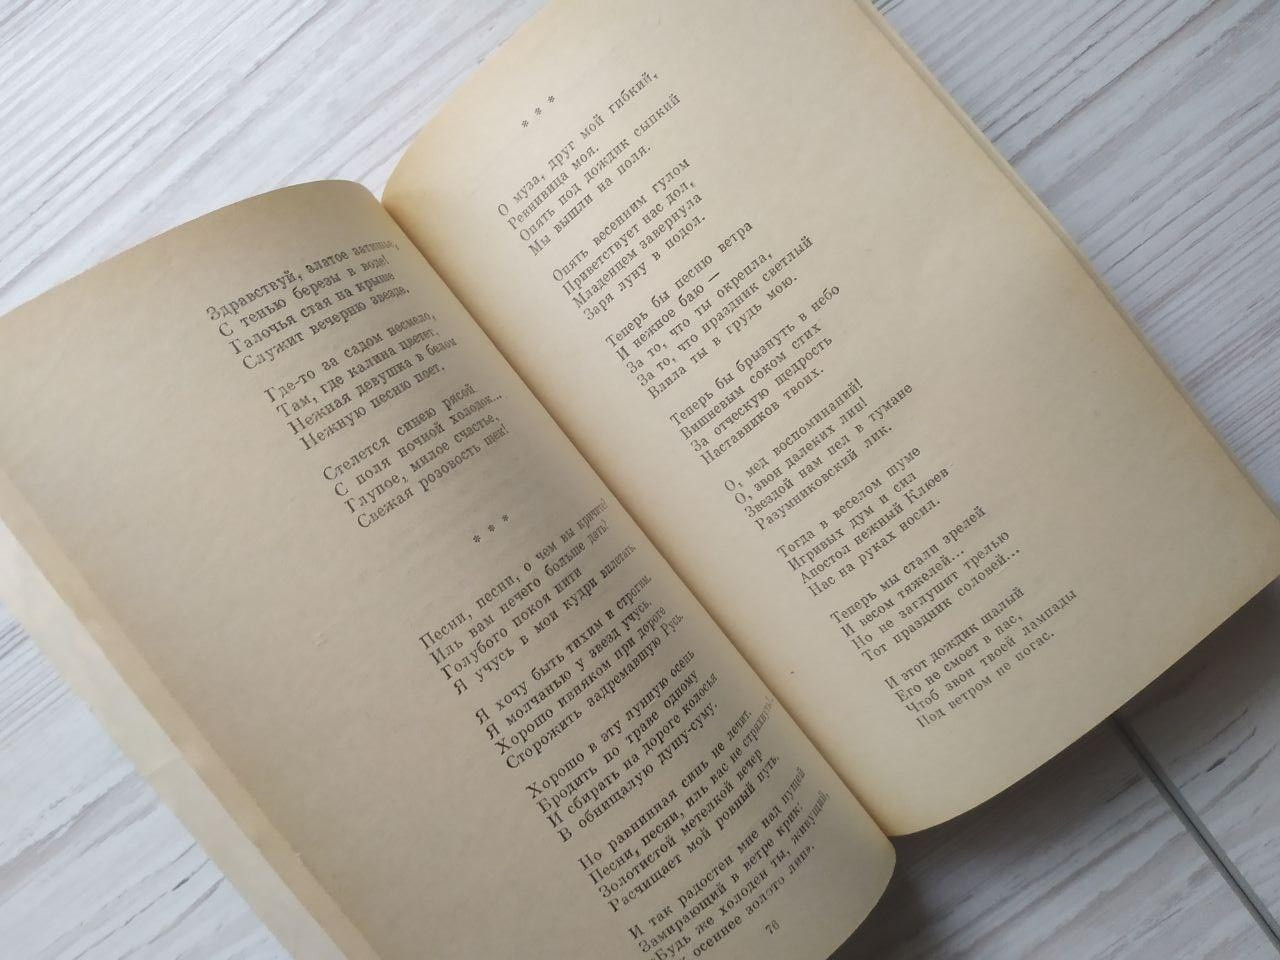 Здравствуй, златое затишье,
С тенью березы в воде!
Галочья стая на крыше
Служит вечерню звезде.
Где-то за садом несмело,
Там, где калина цветет,
Нежная девушка в белом
Нежную песню поет.
Стелется синею рясой
С поля ночной холодок...
Глупое, милое счастье,
Свежая розовость щек!
* * *
Песни, песни, о чем вы кричите?
Иль вам нечего больше дать?
Голубого покоя нити
Я учусь в мои кудри вплетать.
Я хочу быть тихим и строгим.
Я молчанью у звезд учусь.
Хорошо ивняком при дороге
Сторожить задремавшую Русь.
Хорошо в эту лунную осень
Бродить по траве одному
И сбирать на дороге колосья
В обнищалую душу-суму.
Но равнинная синь не лечит.
Песни, песни, иль вас не стряхнуть?..
Золотистой метелкой вечер
Расчищает мой ровный путь.
И так радостен мне над пущей
Замирающий в ветре крик:
«Будь же холоден ты, живущий,
осеннее золото лип».
76
* * *
О муза, друг мой гибкий,
Ревнивица моя.
Опять под дождик сыпкий
Мы вышли на поля.
Опять весенним гулом
Приветствует нас дол,
Младенцем завернула
Заря луну в подол.
Теперь бы песню ветра
И нежное баю —
За то, что ты окрепла,
За то, что праздник светлый
Влила ты в грудь мою.
Теперь бы брызнуть в небо
Вишневым соком стих
За отческую щедрость
Наставников твоих.
О, мед воспоминаний!
О, звон далеких лип!
Звездой нам пел в тумане
Разумниковский лик.
Тогда в веселом шуме
Игривых дум и сил
Апостол нежный Клюев
Нас на руках носил.
Теперь мы стали зрелей
И весом тяжелей...
Но не заглушит трелью
Тот праздник соловей...
И этот дождик шалый
Его не смоет в нас,
Чтоб звон твоей лампады
Под ветром не погас.